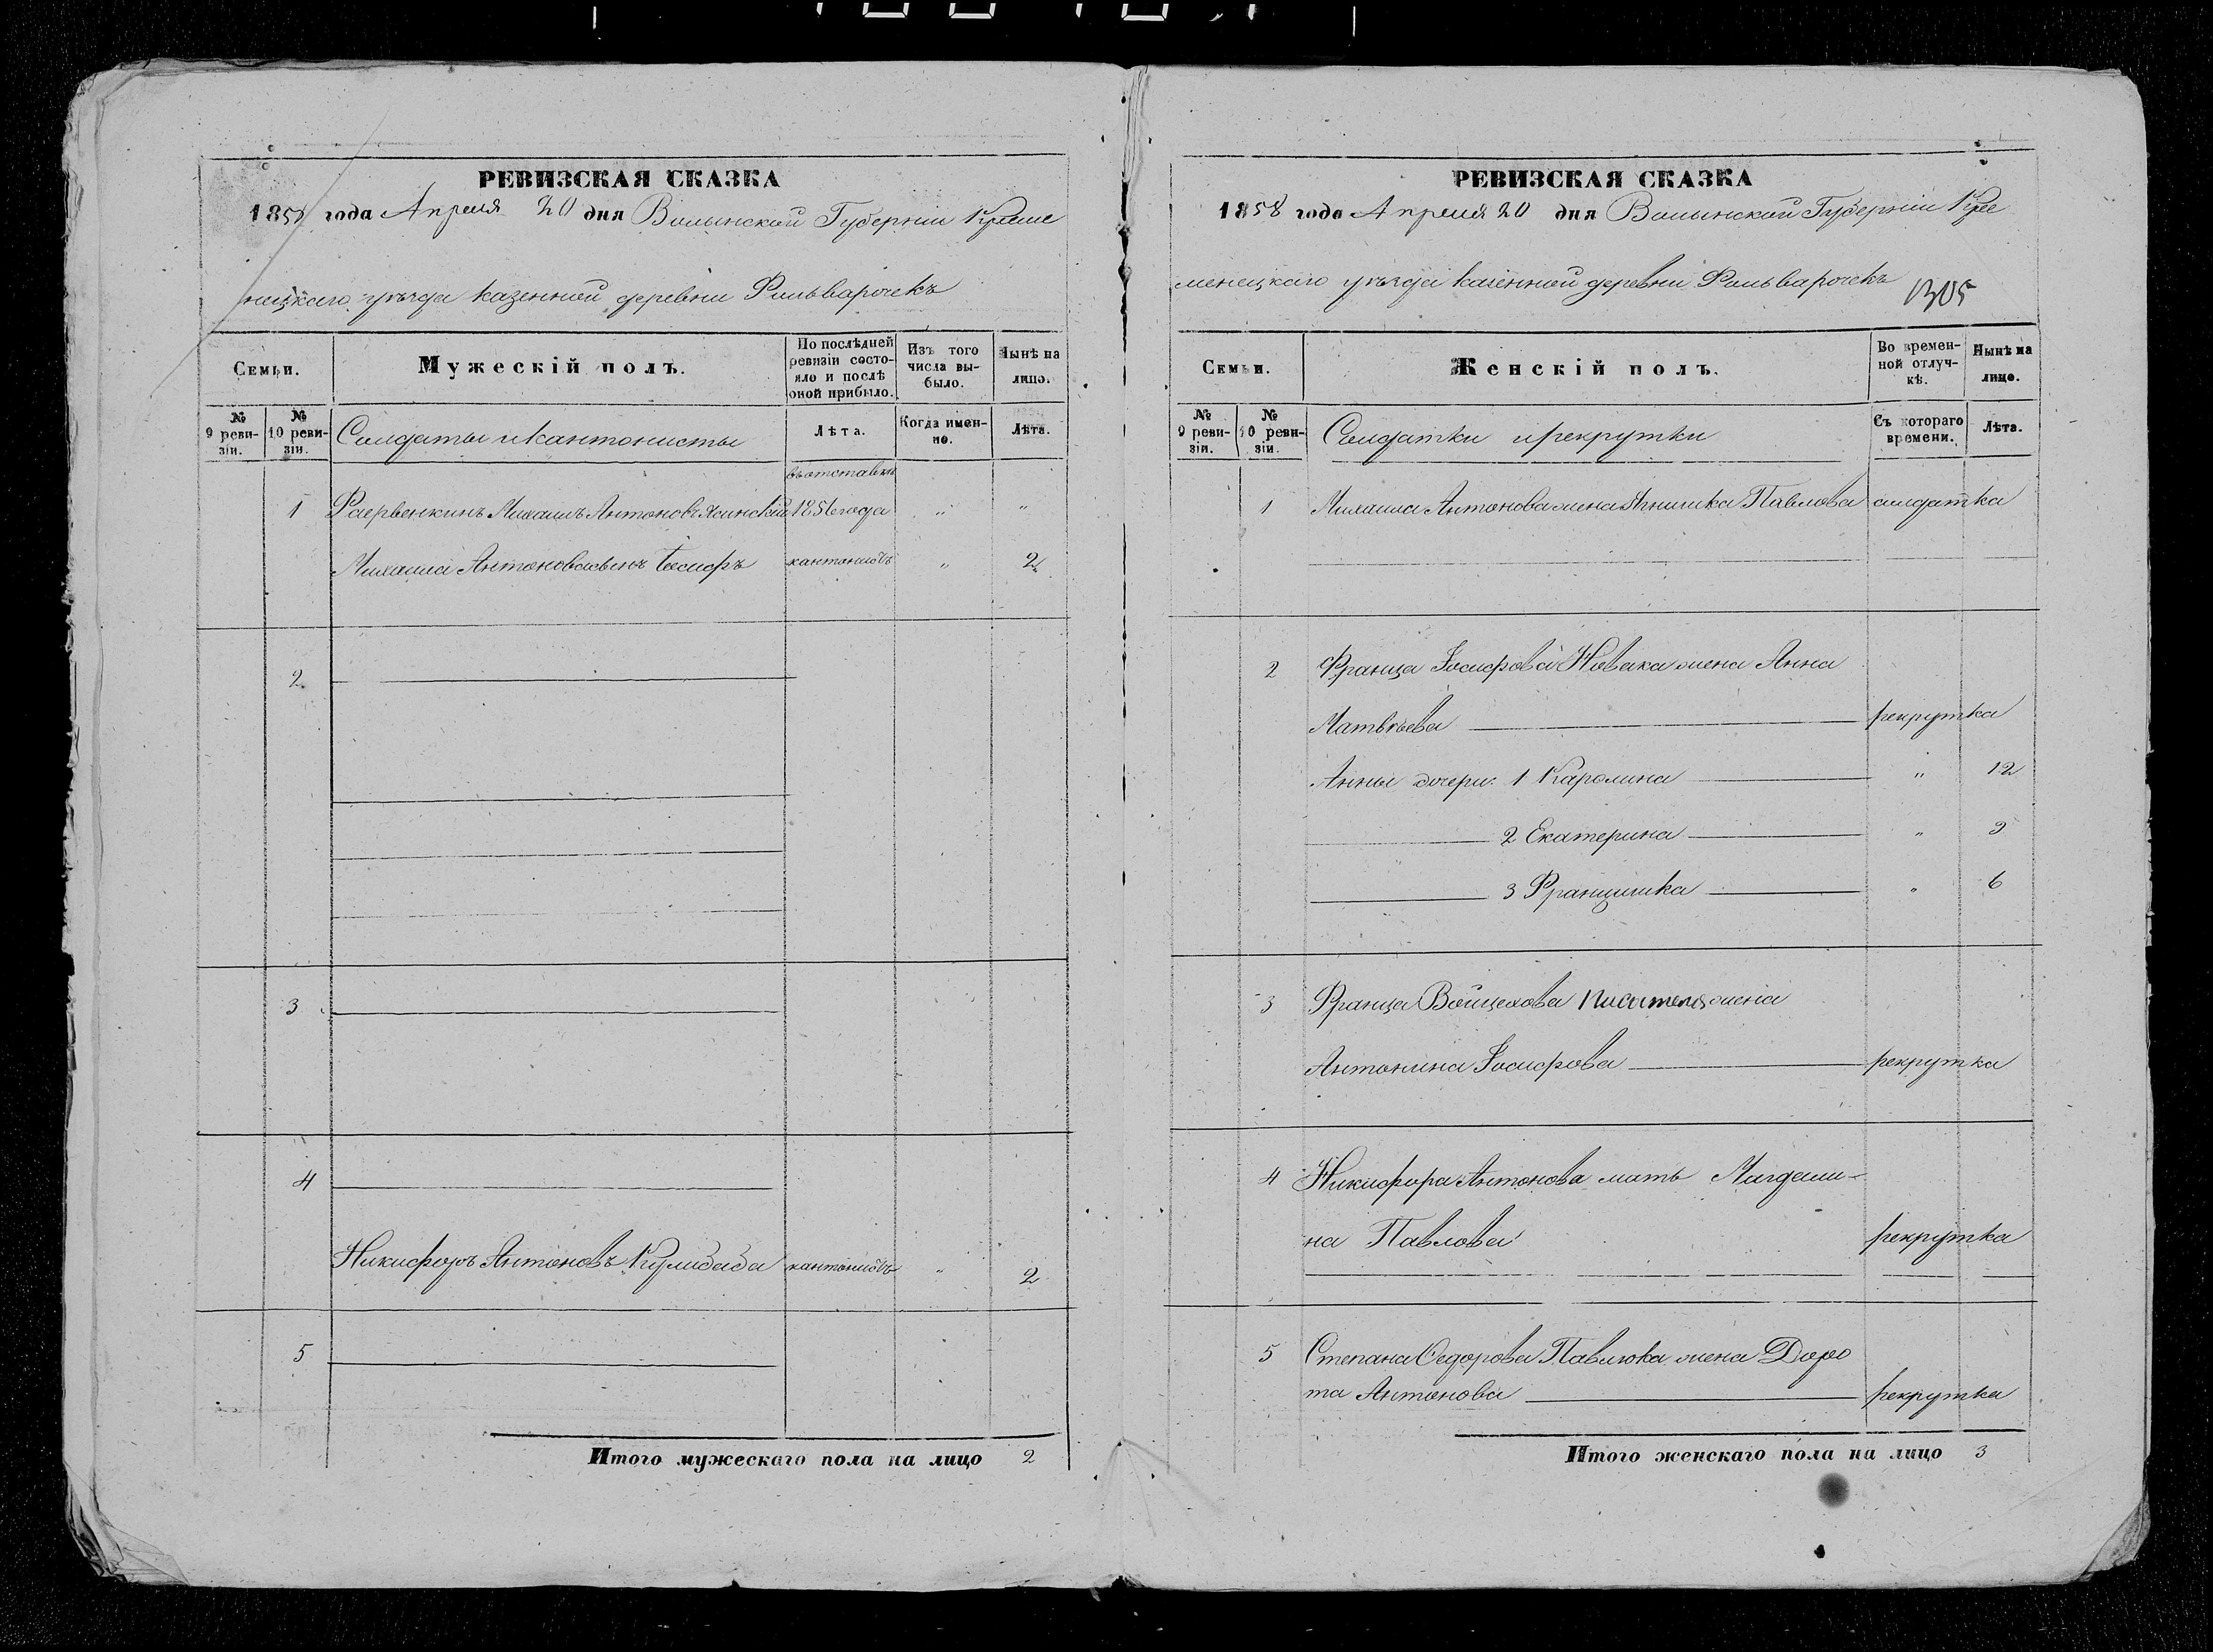 РЕВИЗСКАЯ СКАЗКА
1858 года Апреля 20 дня Волынской Губернии Креме
нецкаго уѣзда казенной деревни Фольварочекъ
Семьи.
Мужескій полъ.
По послѣдней ревизіи состояло и послѣ оной прибыло.
Изъ того числа выбыло.
Нынѣ на лицо.
№ 9 ревизіи.
№ 10 ревизіи.
Солдаты и кантонисты
Лѣта.
Когда именно.
Лѣта.
въ отставкѣ
1 Михаилъ Антоновъ 1856 года " "
Михаила Антонова сынъ Іосифъ кантонистъ " 2
2
3
4
Никифоръ Антоновъ Кулибаба кантонистъ " 2
5
Итого мужескаго пола на лицо 2
РЕВИЗСКАЯ СКАЗКА
1858 года Апреля 20 дня Волынской Губерніи Кре
менецкаго уѣзда казенной деревни Фольварочекъ
1305
Семьи.
Женскій полъ.
Во временной отлучкѣ.
Нынѣ на лицо.
№ 9 ревизіи.
№ 10 ревизіи.
Солдатки и рекрутки
Съ котораго времени.
Лѣта.
1 Михаила Антонова жена Павлова солдатка
2 Франца Іосифова Новака жена Анна
Матвѣева рекрутка
Анны дочери: 1 Каролина " 12
2 Екатерина " 9
3 Францишка " 6
3 Франца Войцехова жена
Антонина Іосифова рекрутка
4 Никифора Антонова мать Магдали-
на Павлова рекрутка
5 Степана Федорова Павлюка жена Доро
та Антонова рекрутка
Итого женскаго пола на лицо 3